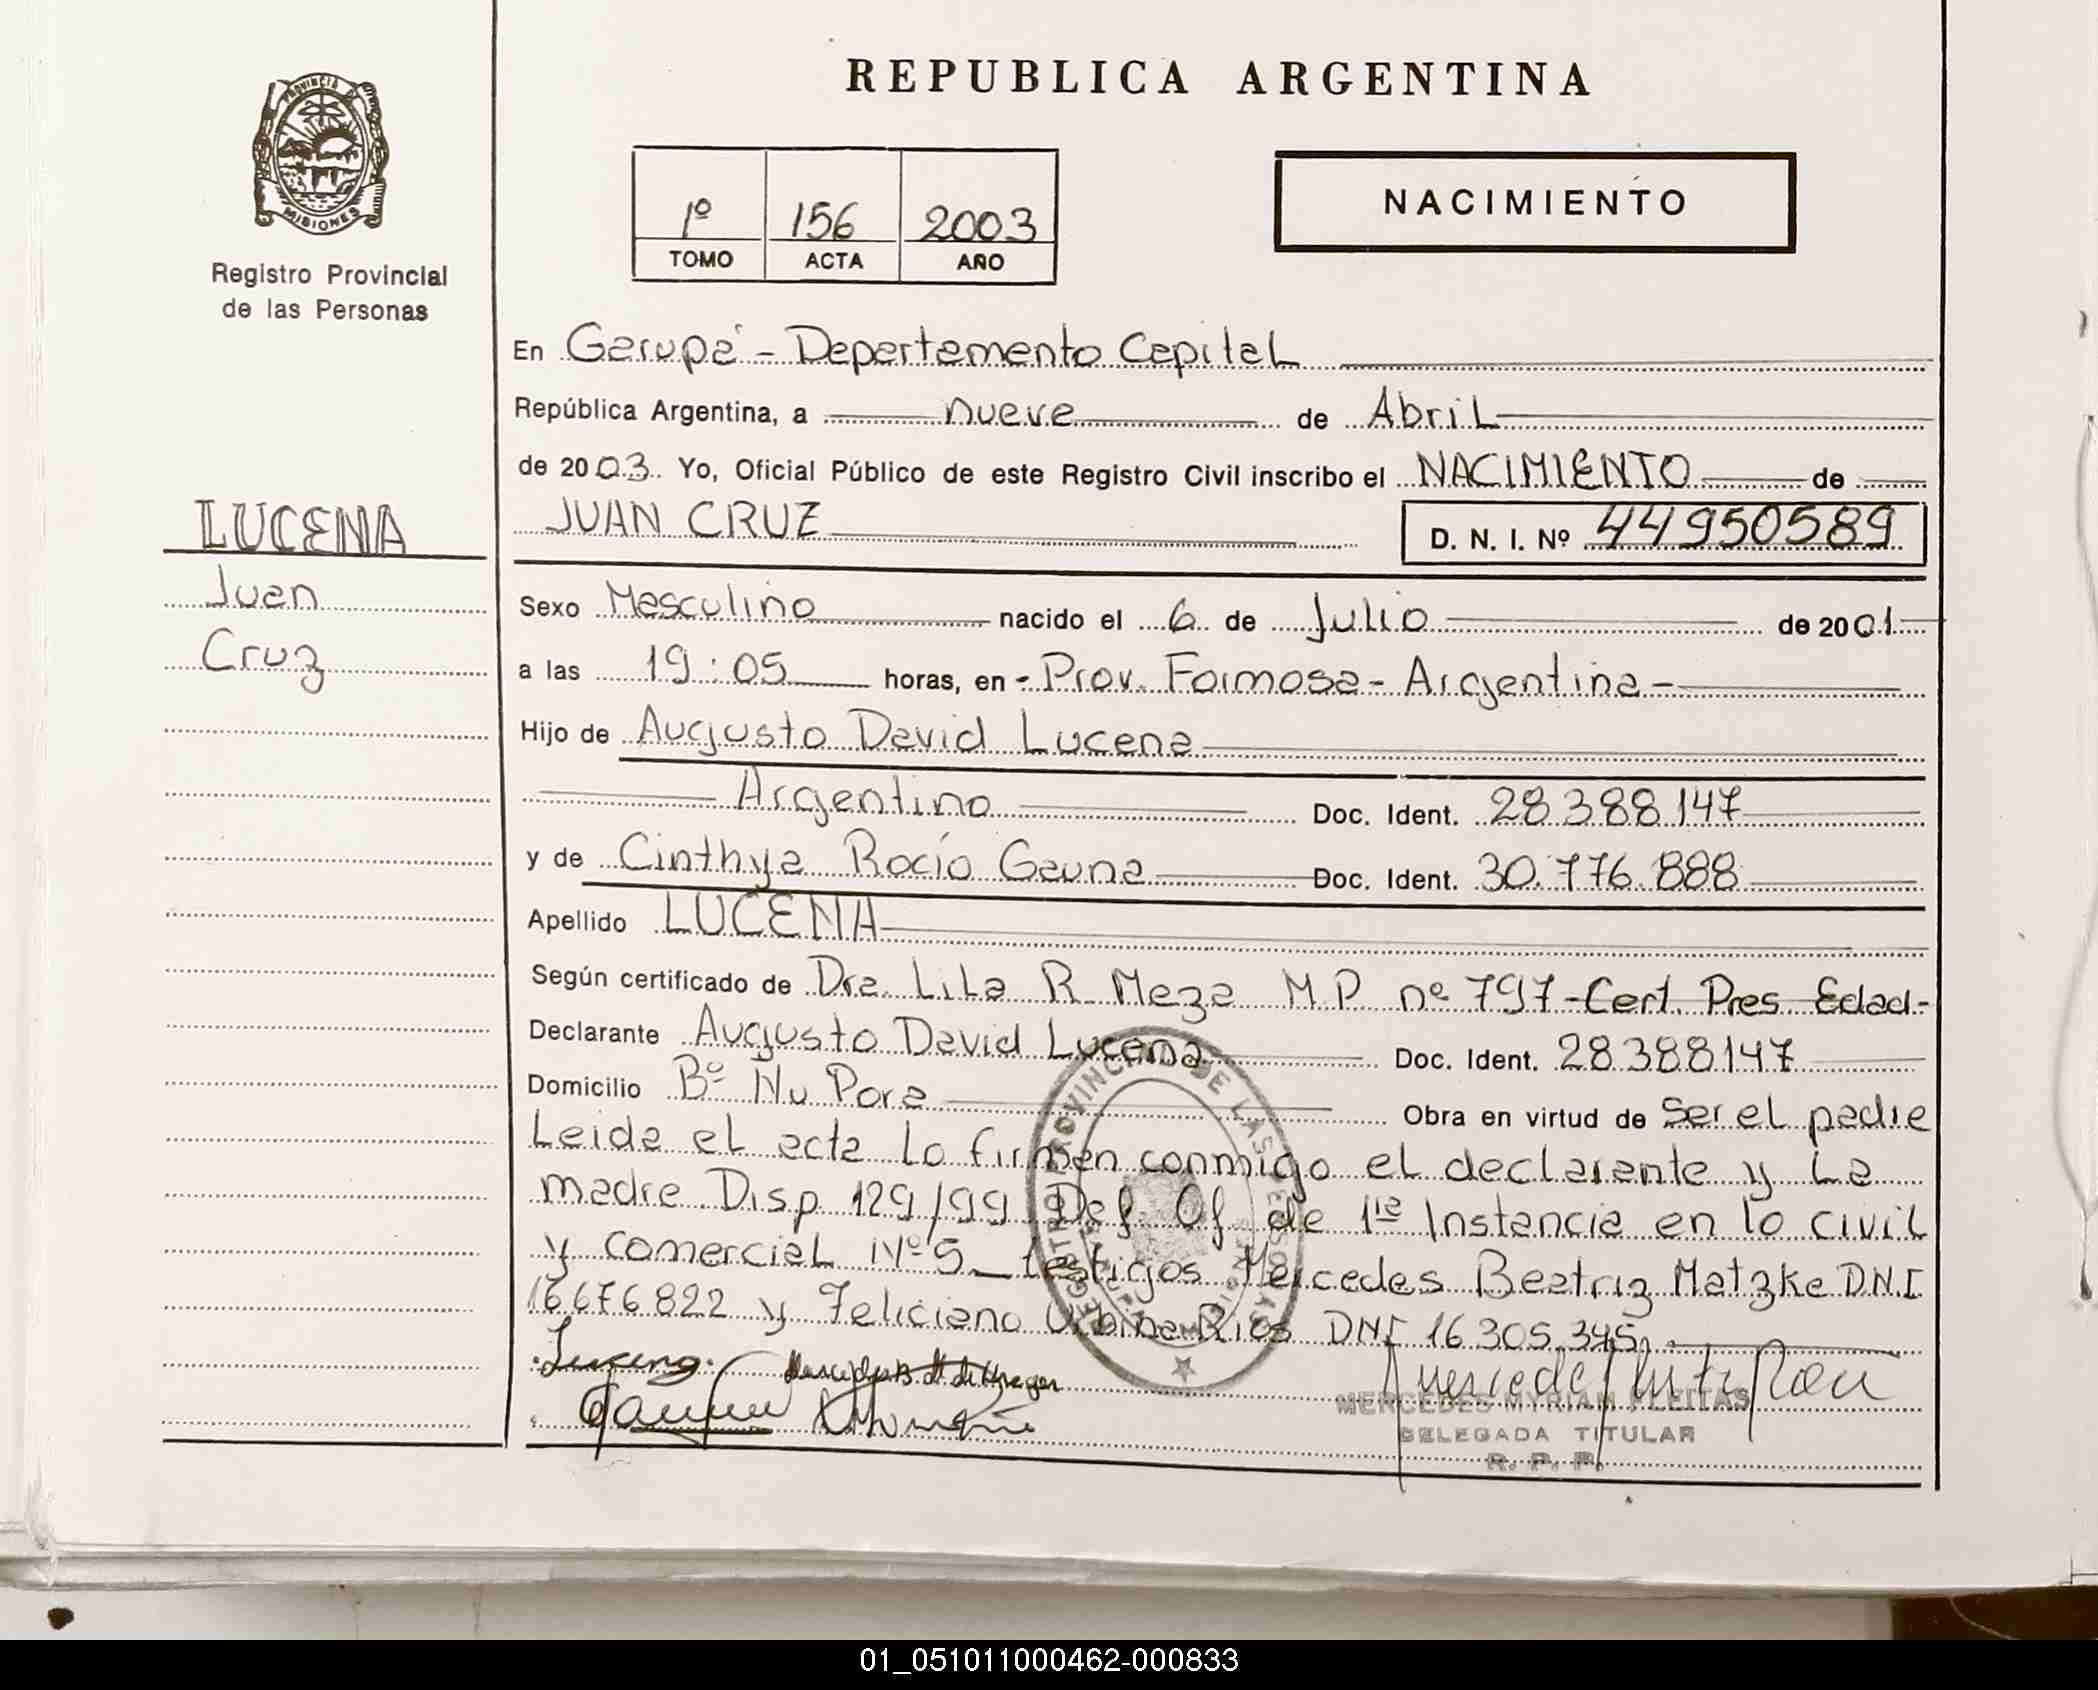 REPUBLICA ARGENTINA
PROVINCIA D
MISIONES
Registro Provincial
de las Personas
1º 156 2003
TOMO ACTA AÑO
NACIMIENTO
En Garupá - Departamento Capital
República Argentina, a nueve de Abril
de 2003 Yo, Oficial Público de este Registro Civil inscribo el NACIMIENTO de
JUAN CRUZ D. N. I. Nº 44950589
LUCENA
Juan
Cruz
Sexo Masculino nacido el 6 de Julio de 2001
a las 19:05 horas, en - Prov. Formosa - Argentina -
Hijo de Augusto David Lucena
Argentino Doc. Ident. 28.388.147
y de Cinthya Rocío Gauna Doc. Ident. 30.776.888
Apellido LUCENA
Según certificado de Dra. Lila R. Meza M.P. nº 797 - Cert. Pres. Edad -
Declarante Augusto David Lucena Doc. Ident. 28.388.147
Domicilio Bº Ñu Pora Obra en virtud de Ser el padre
Leida el acta lo firman conmigo el declarante y La
madre. Disp 129/99 Def. Of. de 1ra Instancia en lo civil
y comercial Nº 5_ testigos Mercedes Beatriz Matzke D.N.I
16676822 y Feliciano Urbina Rios DNI 16.305.345
Lucena
REGISTRO PROVINCIAL DE LAS PERSONAS
MERCEDES MYRIAM FLEITAS
DELEGADA TITULAR
R. P. P.
01_051011000462-000833